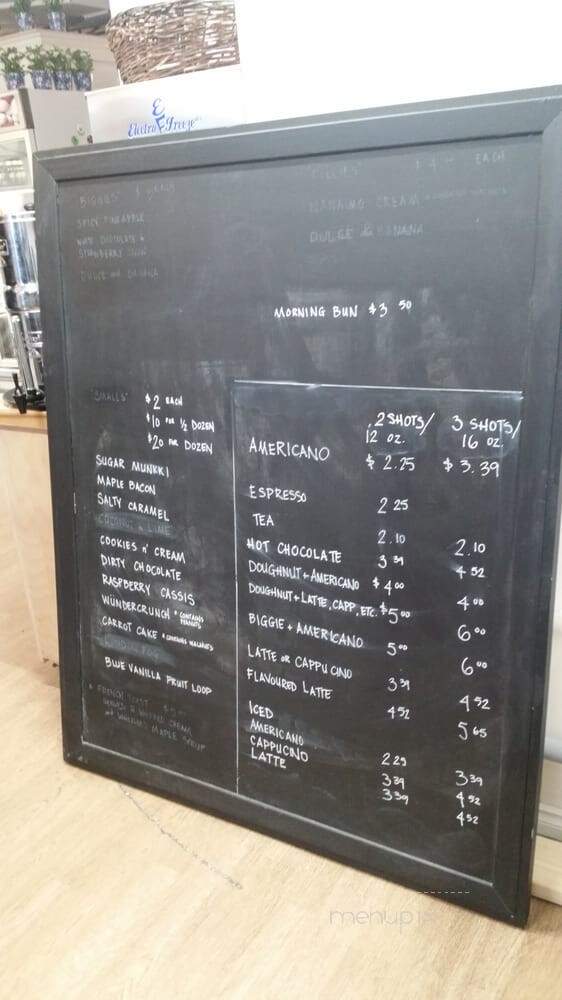 Electro Freeze
BIGGIES $ EACH
SPICY PINEAPPLE
CHOCOLATE &
STRAWBERRY
DULCE BANANA
EACH
NANAIMO CREAM
DULCE & BANANA
MORNING BUN $3 50
SMALLS $2 EACH
$10 PER 1/2 DOZEN
$20 PER DOZEN
SUGAR MUNKKI
MAPLE BACON
SALTY CARAMEL
COCONUT & LIME
COOKIES n' CREAM
DIRTY CHOCOLATE
RASPBERRY CASSIS
WÜNDERCRUNCH * CONTAINS PEANUTS
CARROT CAKE * CONTAINS WALNUTS
BLUE VANILLA FRUIT LOOP
* FRENCH TOAST
WHIPPED CREAM
MAPLE SYRUP
2 SHOTS/ 3 SHOTS/
12 OZ. 16 OZ.
AMERICANO $2.25 $3.39
ESPRESSO 2 25
TEA 2.10 2.10
HOT CHOCOLATE 3 39 4 52
DOUGHNUT + AMERICANO $4 00 4 00
DOUGHNUT + LATTE, CAPP, ETC. $5 00 6 00
BIGGIE + AMERICANO 5 00 6 00
LATTE OR CAPPUCINO 3 39 4 52
FLAVOURED LATTE 4 52 5 65
ICED
AMERICANO 2 25 3 39
CAPPUCINO 3 39 4 52
LATTE 3 39 4 52
menupix